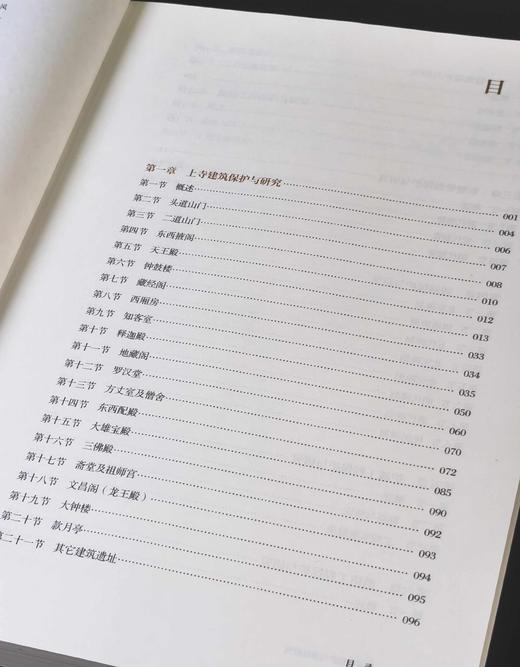 风
目
第一章 上寺建筑保护与研究 001
第一节 概述 004
第二节 头道山门 006
第三节 二道山门 007
第四节 东西掖阁 008
第五节 天王殿 010
第六节 钟鼓楼 012
第七节 藏经阁 013
第八节 西厢房 033
第九节 知客室 034
第十节 释迦殿 035
第十一节 地藏阁 050
第十二节 罗汉堂 060
第十三节 方丈室及僧舍 070
第十四节 东西配殿 072
第十五节 大雄宝殿 085
第十六节 三佛殿 090
第十七节 斋堂及祖师宫 092
第十八节 文昌阁（龙王殿） 093
第十九节 大钟楼 094
第二十节 款月亭 095
第二十一节 其它建筑遗址 096
目